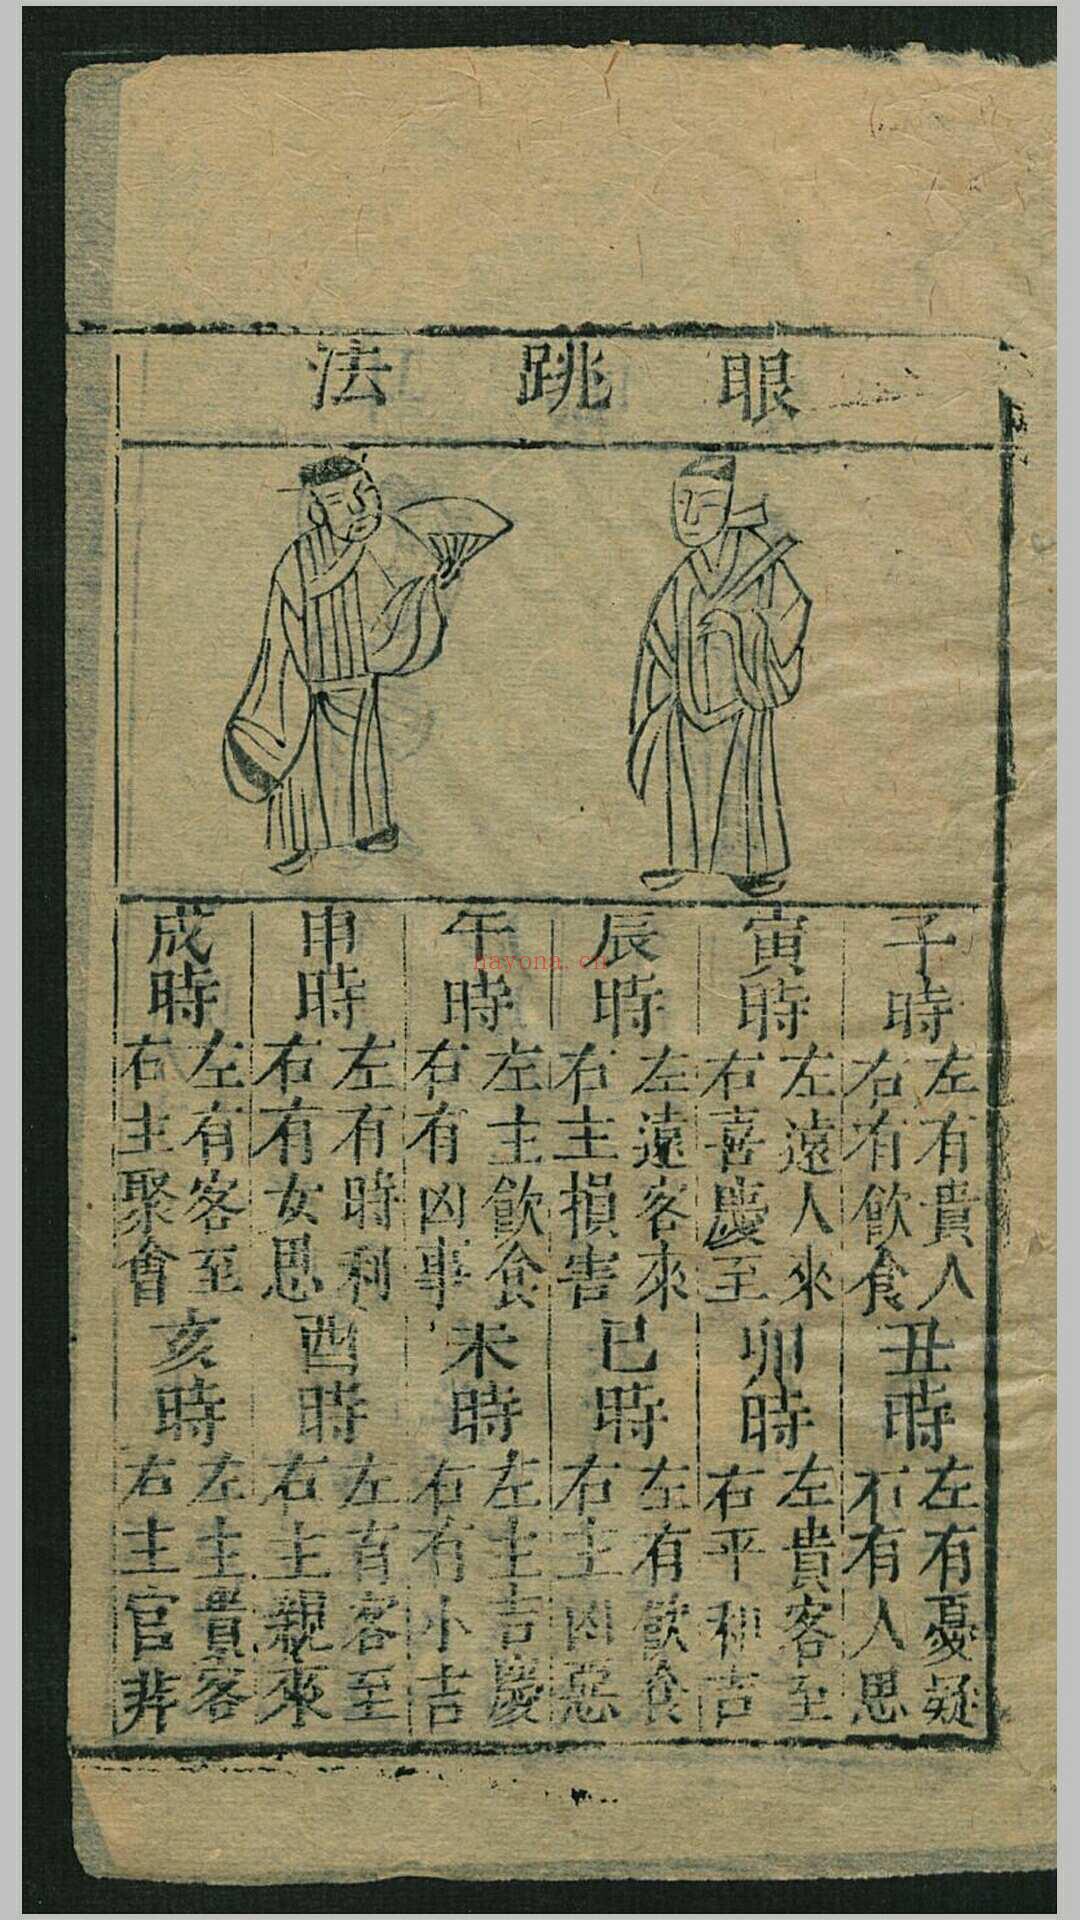 眼跳法
子時
左有貴人
右有飲食
丑時
左有憂疑
右有人思
寅時
左遠人來
右喜慶至
卯時
左貴客至
右平和吉
辰時
左遠客來
右主損害
巳時
左有飲食
右主凶惡
午時
左主飲食
右有凶事
未時
左主吉慶
右有小吉
申時
左有時利
右有女思
酉時
左有客至
右主親來
戌時
左有客至
右主聚會
亥時
左主貴客
右主官非
nayona.cn